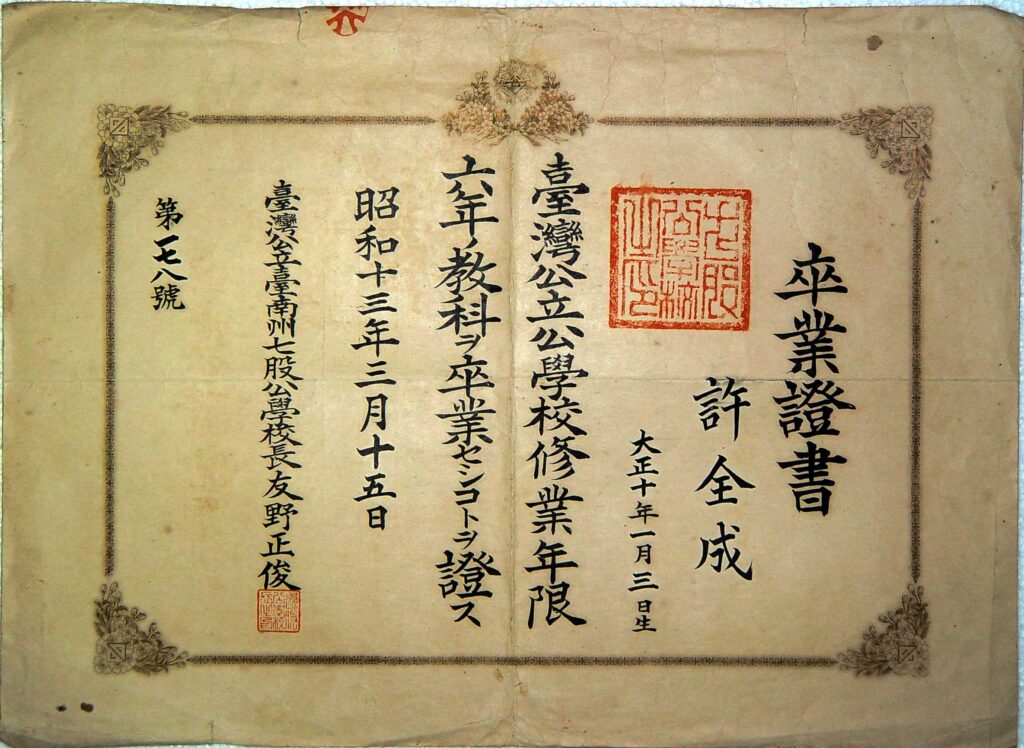 卒業證書
許全成
大正十年一月三日生
七股公學校之印
臺灣公立公學校修業年限
六ヶ年ノ教科ヲ卒業セシコトヲ證ス
昭和十三年三月十五日
臺灣公立臺南州七股公學校長友野正俊
第一七八號